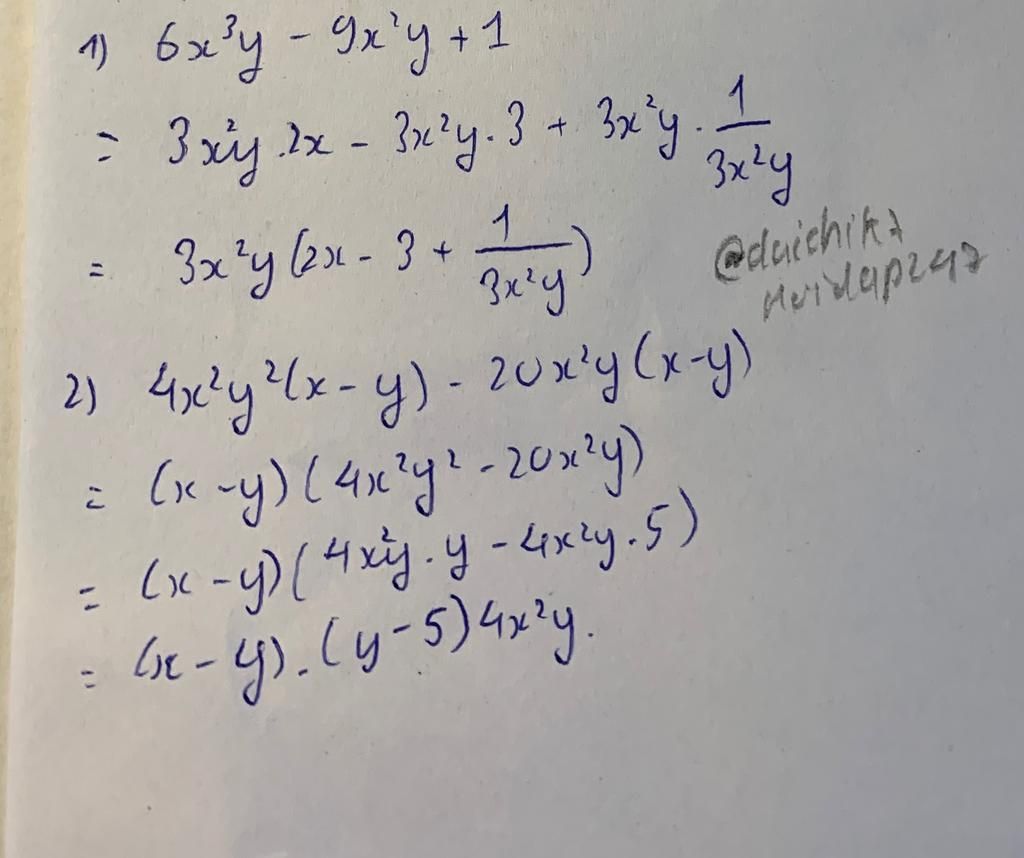 1) 6x³y - 9x²y + 1
= 3x²y.2x - 3x²y.3 + 3x²y.1/3x²y
= 3x²y(2x - 3 + 1/3x²y)
2) 4x²y²(x - y) - 20x²y(x-y)
= (x-y)(4x²y² - 20x²y)
= (x-y)(4x²y.y - 4x²y.5)
= (x-y).(y-5)4x²y.